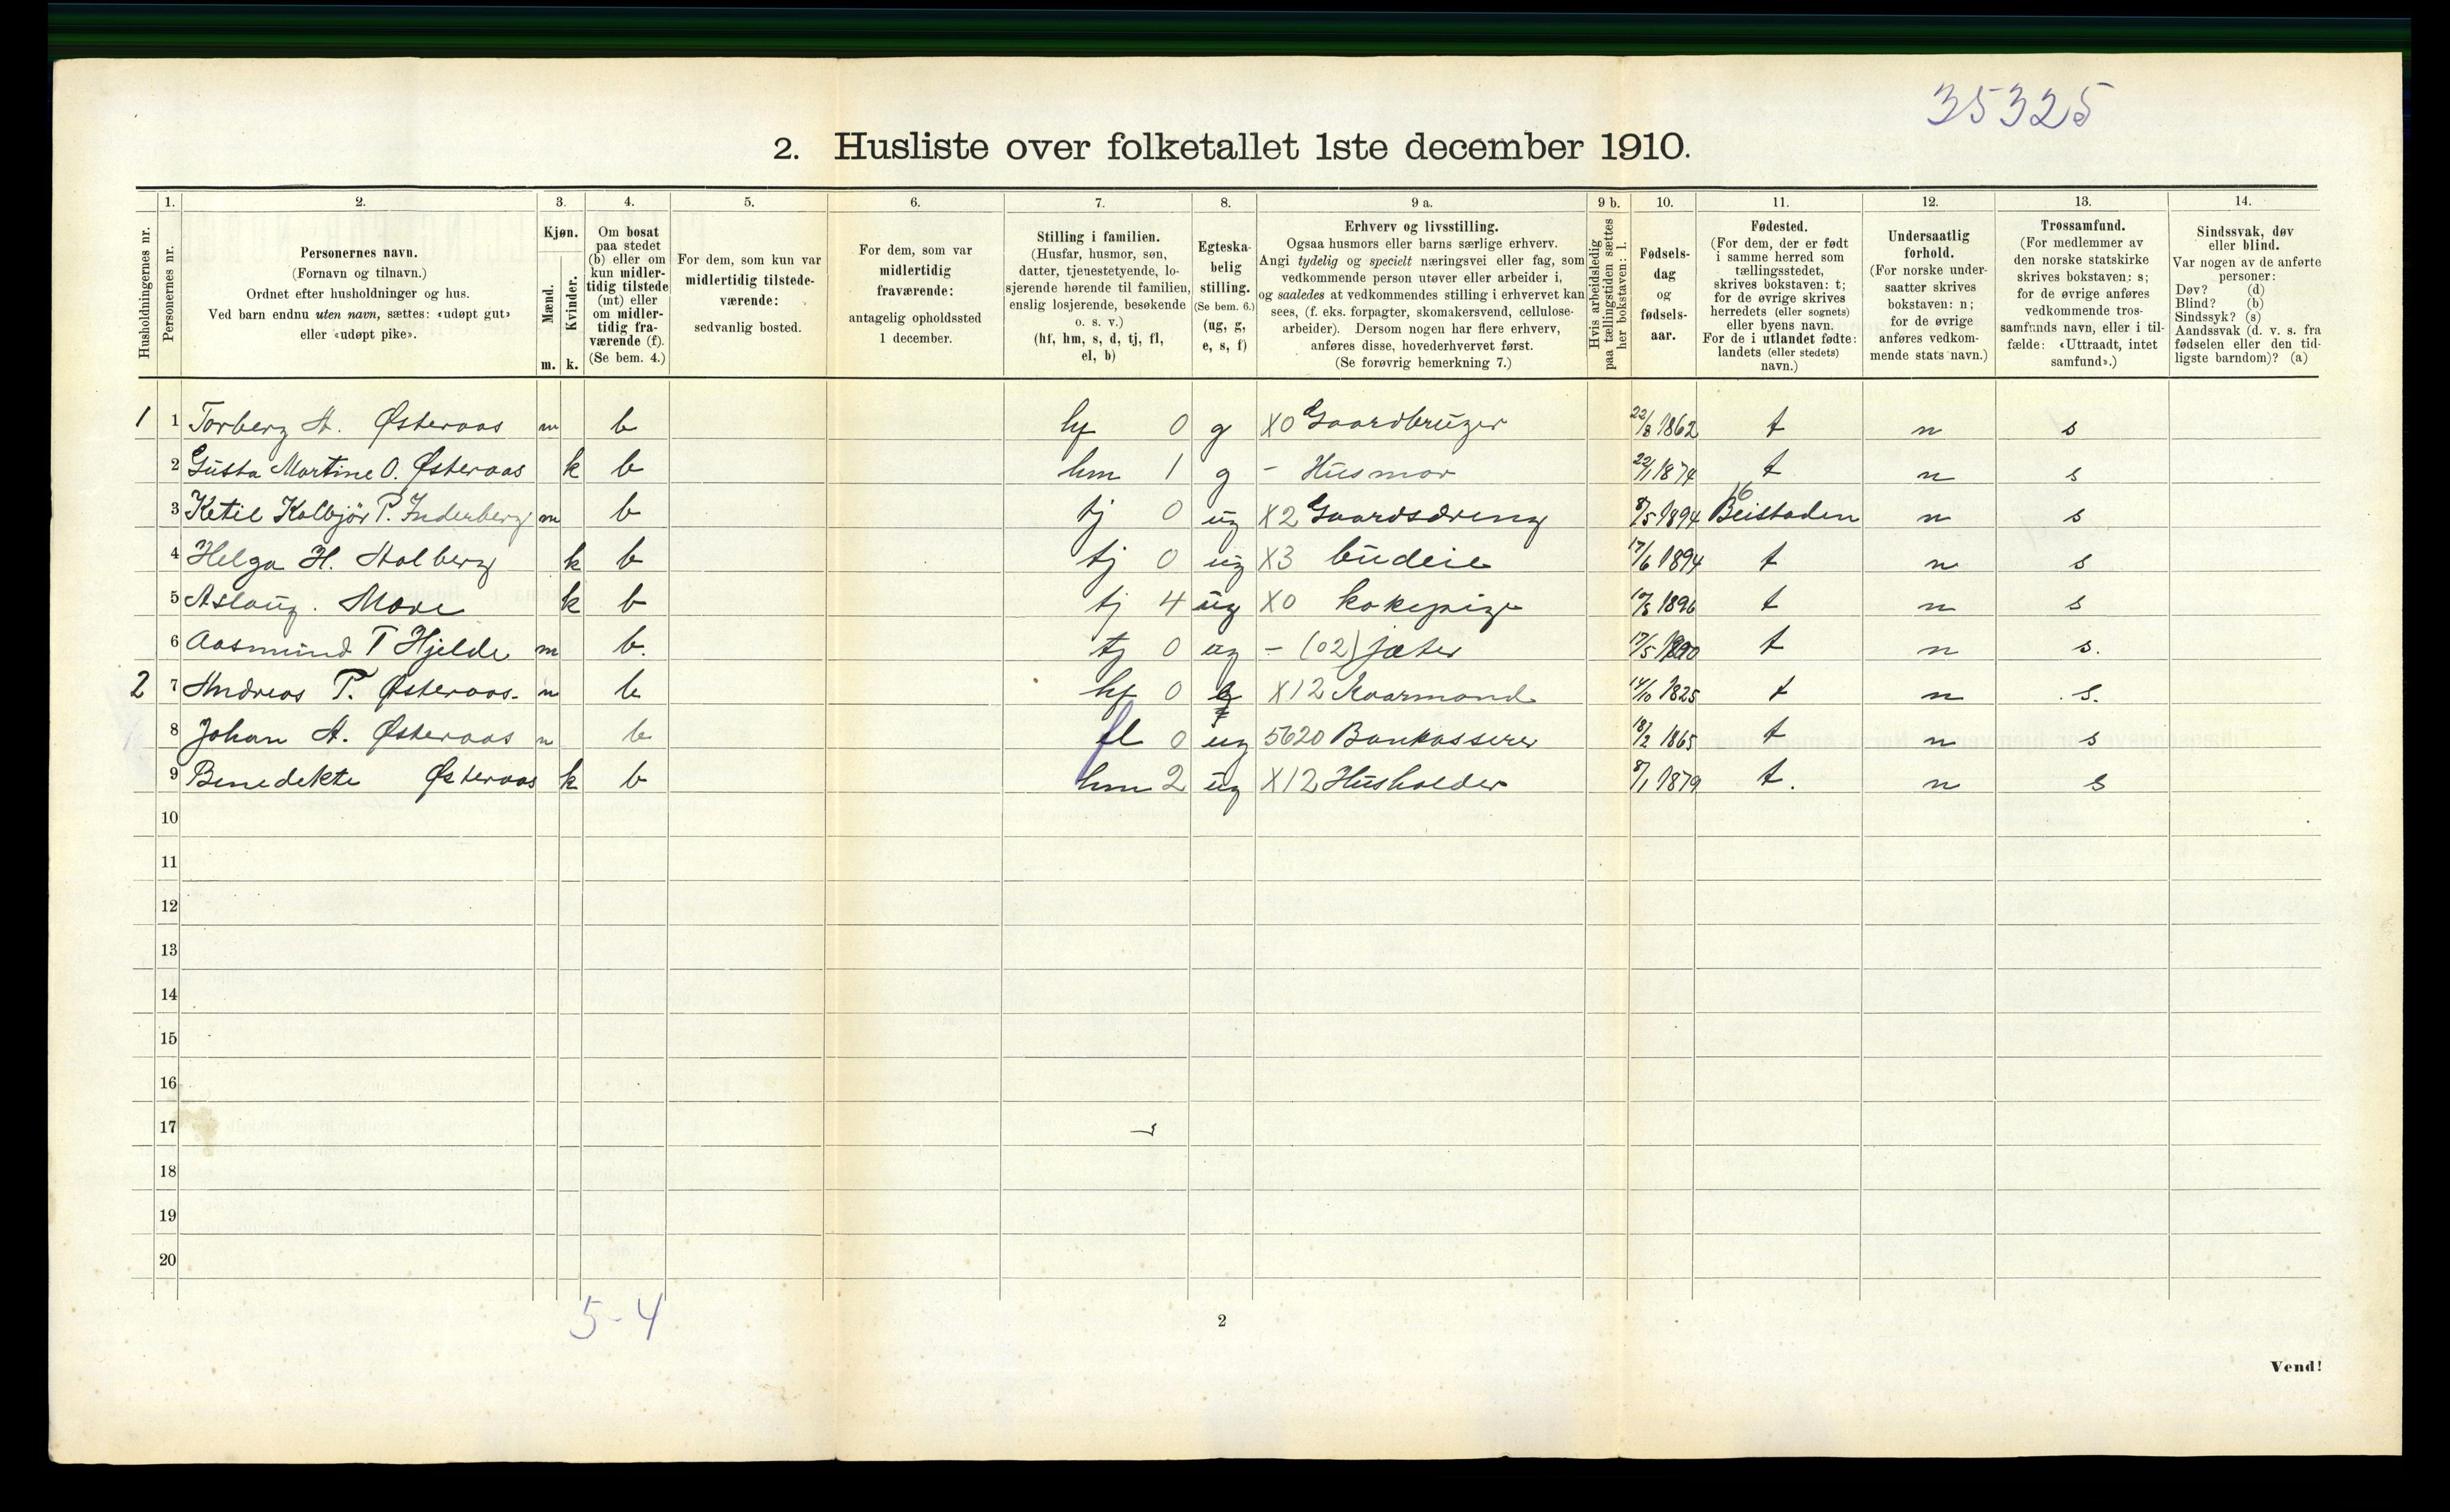 35325
2. Husliste over folketallet 1ste december 1910.
Husholdningernes nr.
1.
Personernes nr.
2.
Personernes navn.
(Fornavn og tilnavn.)
Ordnet efter husholdninger og hus.
Ved barn endnu uten navn, sættes: «udøpt gut»
eller «udøpt pike».
3.
Kjøn.
Mænd.
Kvinder.
m. k.
4.
Om bosat
paa stedet
(b) eller om
kun midler-
tidig tilstede
(mt) eller
om midler-
tidig fra-
værende (f).
(Se bem. 4.)
5.
For dem, som kun var
midlertidig tilstede-
værende:
sedvanlig bosted.
6.
For dem, som var
midlertidig
fraværende:
antagelig opholdssted
1 december.
7.
Stilling i familien.
(Husfar, husmor, søn,
datter, tjenestetyende, lo-
sjerende hørende til familien,
enslig losjerende, besøkende
o. s. v.)
(hf, hm, s, d, tj, fl,
el, b)
8.
Egteska-
belig
stilling.
(Se bem. 6.)
(ug, g,
e, s, f)
9 a.
Erhverv og livsstilling.
Ogsaa husmors eller barns særlige erhverv.
Angi tydelig og specielt næringsvei eller fag, som
vedkommende person utøver eller arbeider i,
og saaledes at vedkommendes stilling i erhvervet kan
sees, (f. eks. forpagter, skomakersvend, cellulose-
arbeider). Dersom nogen har flere erhverv,
anføres disse, hovederhvervet først.
(Se forøvrig bemerkning 7.)
9 b.
Hvis arbeidsledig
paa tællingstiden sættes
her bokstaven: l.
10.
Fødsels-
dag
og
fødsels-
aar.
11.
Fødested.
(For dem, der er født
i samme herred som
tællingsstedet,
skrives bokstaven: t;
for de øvrige skrives
herredets (eller sognets)
eller byens navn.
For de i utlandet fødte:
landets (eller stedets)
navn.)
12.
Undersaatlig
forhold.
(For norske under-
saatter skrives
bokstaven: n;
for de øvrige
anføres vedkom-
mende stats navn.)
13.
Trossamfund.
(For medlemmer av
den norske statskirke
skrives bokstaven: s;
for de øvrige anføres
vedkommende tros-
samfunds navn, eller i til-
fælde: «Uttraadt, intet
samfund».)
14.
Sindssvak, døv
eller blind.
Var nogen av de anførte
personer:
Døv? (d)
Blind? (b)
Sindssyk? (s)
Aandssvak (d. v. s. fra
fødselen eller den tid-
ligste barndom)? (a)
1 1 Torberg A. Østeraas m b hf 0 g X0 Gaardbruger 22/8 1862 t n s
2 Gusta Martine O. Østeraas k b hm 1 g - Husmor 22/1 1874 t n s
3 Ketil Kolbjør P. Inderberg m b tj 0 ug X2 Gaardsdreng 8/5 1894 16 Beistaden n s
4 Helga H. Stolberg k b tj 0 ug X3 budeie 17/6 1894 t n s
5 Aslaug. Mære k b tj 4 ug X0 kokepige 1896 t n s
6 Aasmund T Hjelde m b. tj 0 ug - (02) jæter 17/5 t n s.
2 7 Andreas P. Østeraas. m b hf 0 X12 Kaarmand 14/10 1825 t n s.
8 Johan A. Østeraas m b fl 0 ug 5620 Bankasserer 18/2 1865 t n s
9 Benedekte Østeraas k b hm 2 ug X12 Husholder 8/1 1879 t. n s
10
11
12
13
14
15
16
17
18
19
20
5-4
2
Vend!